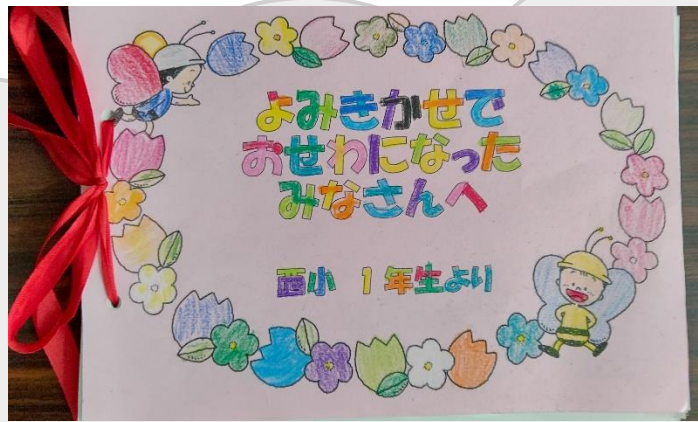 よみきかせで
おせわになった
みなさんへ
西小 1年生より